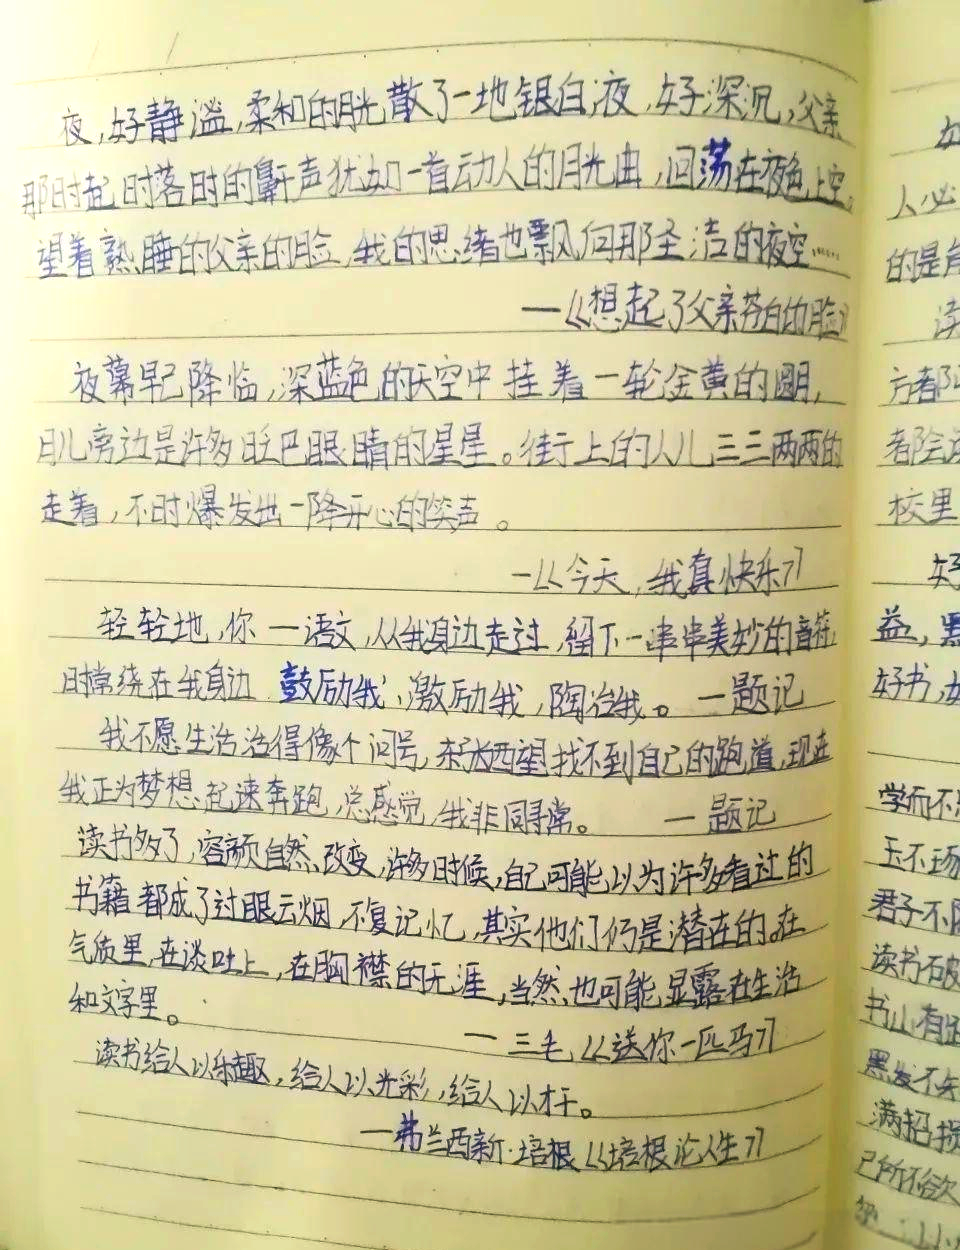 夜,好静溢,柔和的月光散了一地银白液,好深沉,父亲
那时起时落时的鼾声犹如一首动人的月光曲,回荡在夜色上空。
望着熟睡的父亲的脸,我的思绪也飘向那圣洁的夜空……
—《想起了父亲苍白的脸》
夜幕早已降临,深蓝色的天空中挂着一轮金黄的圆月,
月儿旁边是许多眨巴眼睛的星星。街上的人儿三三两两的
走着,不时爆发出一阵开心的笑声。
—《今天,我真快乐》
轻轻地,你一语文,从我身边走过,留下一串串美妙的音符,
时常绕在我身边 鼓励我、激励我,陶冶我。—题记
我不愿生活活得像个问号,东张西望找不到自己的跑道,现在
我正为梦想起速奔跑,总感觉,我非同寻常。 —题记
读书多了,容颜自然改变,许多时候,自己可能以为许多看过的
书籍都成了过眼云烟,不复记忆,其实他们仍是潜在的。在
气质里,在谈吐上,在胸襟的无涯,当然,也可能显露在生活
和文字里。
—三毛,《送你一匹马》
读书给人以乐趣,给人以光彩,给人以才干。
—弗兰西斯·培根《培根论人生》
好
人必
的是
读
方都
都会
校里
好
益,
好书,
学而不
玉不琢
君子不
读书破
书山有
黑发不知
满招损
己所不欲